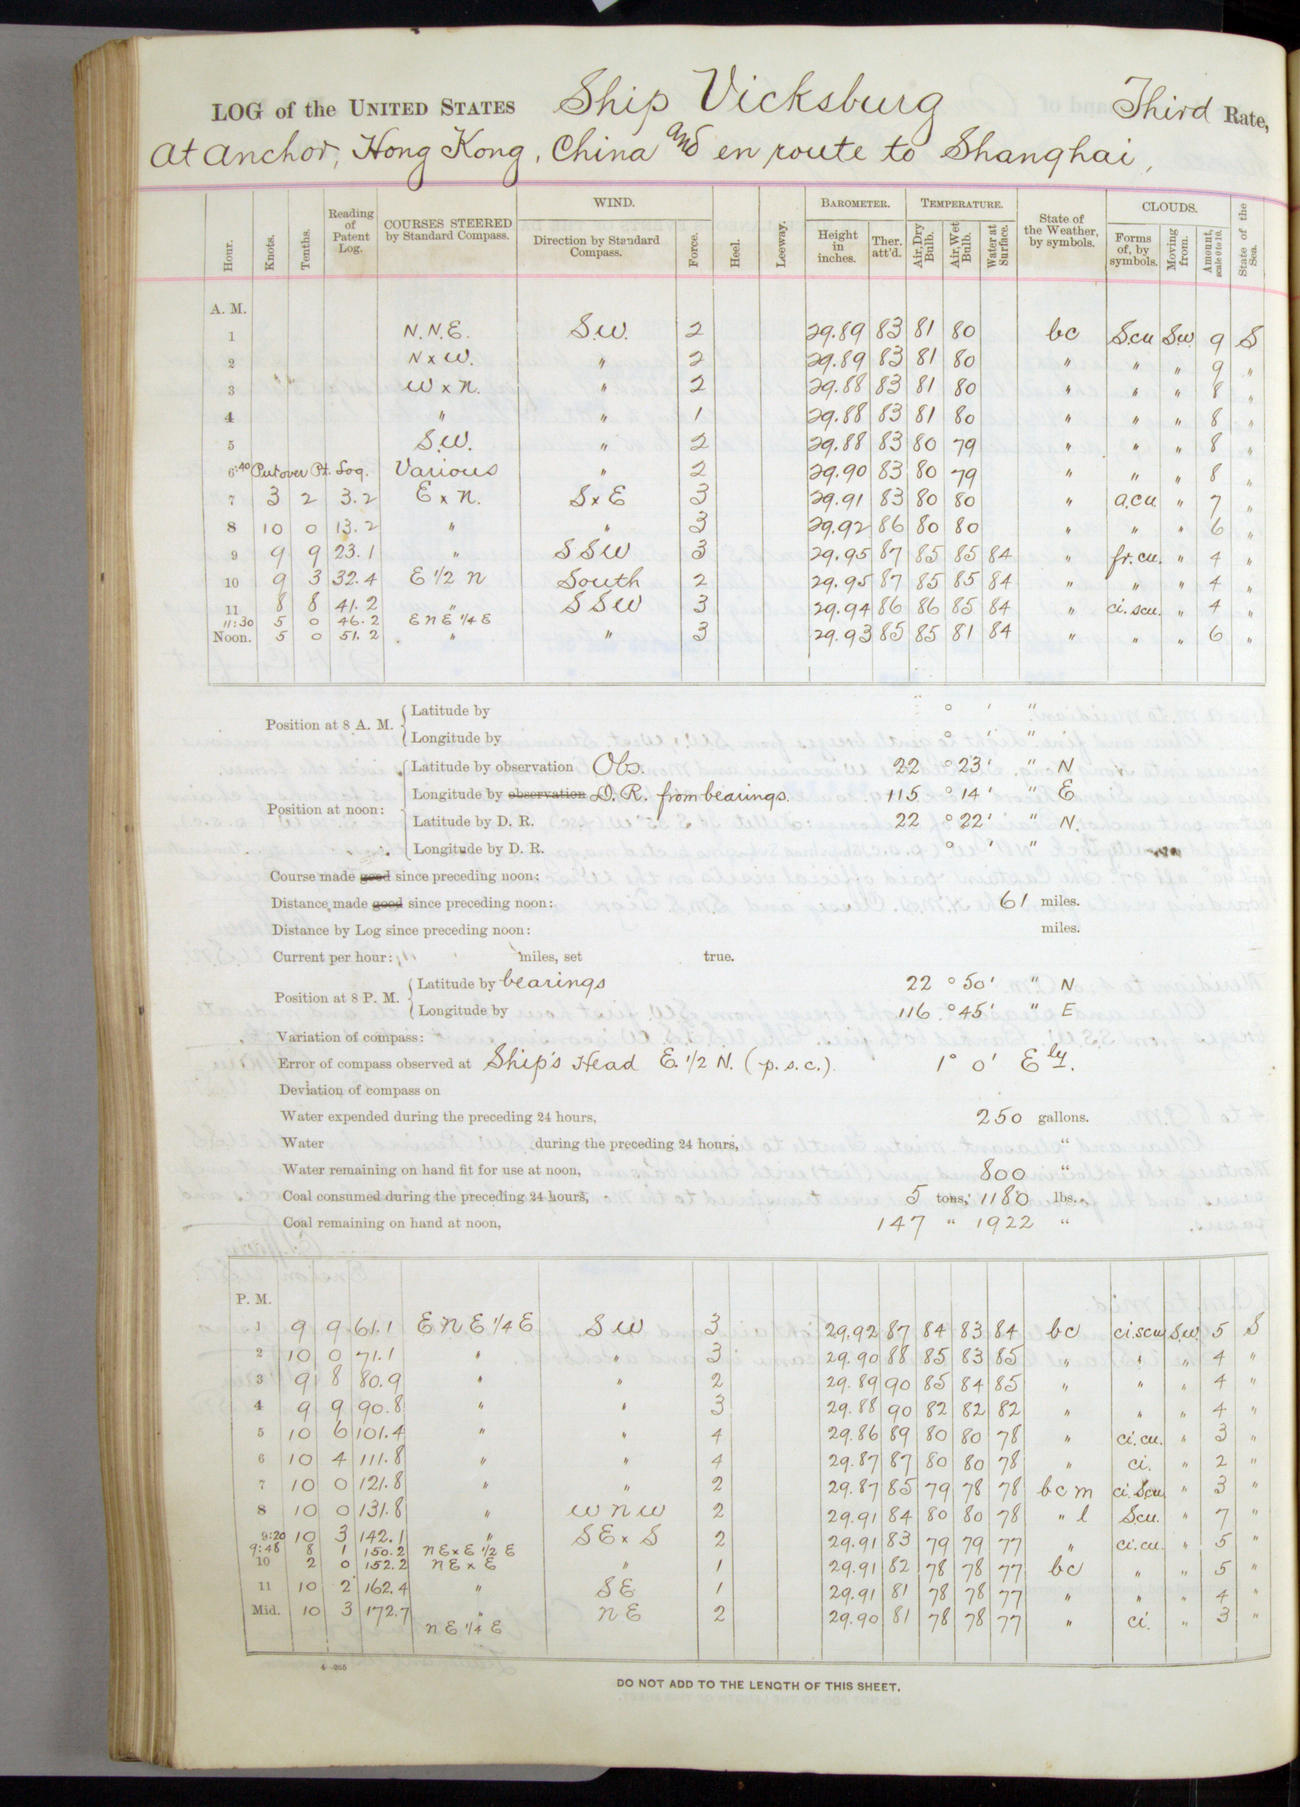 LOG of the UNITED STATES Ship Vicksburg Third Rate,
At anchor, Hong Kong, China and en route to Shanghai,
Hour. Knots. Tenths. Reading of Patent Log. COURSES STEERED by Standard Compass. WIND. Direction by Standard Compass. Force. Heel. Leeway. BAROMETER. Height in inches. Ther. att'd. TEMPERATURE. Air, Dry Bulb. Air, Wet Bulb. Water at Surface. State of the Weather, by symbols. CLOUDS. Forms of, by symbols. Moving from. Amount, scale 0 to 10. State of the Sea.
A. M.
1 N.N.E. S.W. 2 29.89 83 81 80 bc S.cu S.W. 9 S
2 N x W. " 2 29.89 83 81 80 " " " 9 "
3 W x N. " 2 29.88 83 81 80 " " " 8 "
4 " " 1 29.88 83 81 80 " " " 8 "
5 S.W. " 2 29.88 83 80 79 " " " 8 "
6:40 Put over Pt. Log. Various " 2 29.90 83 80 79 " " " 8 "
7 3 2 3.2 E x N. S x E 3 29.91 83 80 80 " a.cu. " 7 "
8 10 0 13.2 " " 3 29.92 86 80 80 " " " 6 "
9 9 9 23.1 " SSW 3 29.95 87 85 85 84 " fr.cu. " 4 "
10 9 3 32.4 E 1/2 N South 2 29.95 87 85 85 84 " " " 4 "
11 8 8 41.2 " SSW 3 29.94 86 86 85 84 " ci.scu. " 4 "
11:30 5 0 46.2 ENE 1/4 E
Noon. 5 0 51.2 " " 3 29.93 85 85 81 84 " " " 6 "
Position at 8 A. M. Latitude by ° ' "
Longitude by ° ' "
Position at noon: Latitude by observation Obs. 22 ° 23 ' " N
Longitude by observation D.R. from bearings. 115 ° 14 ' " E
Latitude by D. R. 22 ° 22 ' " N.
Longitude by D. R. ° ' "
Course made good since preceding noon:
Distance made good since preceding noon: 61 miles.
Distance by Log since preceding noon: miles.
Current per hour: miles, set true.
Position at 8 P. M. Latitude by bearings 22 ° 50 ' " N
Longitude by 116 ° 45 ' " E
Variation of compass:
Error of compass observed at Ship's Head E. 1/2 N. (p.s.c.). 1° 0' Ely.
Deviation of compass on
Water expended during the preceding 24 hours, 250 gallons.
Water during the preceding 24 hours, "
Water remaining on hand fit for use at noon, 800 "
Coal consumed during the preceding 24 hours, 5 tons, 1180 lbs.
Coal remaining on hand at noon, 147 " 1922 "
P. M.
1 9 9 61.1 ENE 1/4 E SW 3 29.92 87 84 83 84 bc ci.scu S.W. 5 S
2 10 0 71.1 " " 3 29.90 88 85 83 85 " " " 4 "
3 9 8 80.9 " " 2 29.89 90 85 84 85 " " " 4 "
4 9 9 90.8 " " 3 29.88 90 82 82 82 " " " 4 "
5 10 6 101.4 " " 4 29.86 89 80 80 78 " ci.cu. " 3 "
6 10 4 111.8 " " 4 29.87 87 80 80 78 " ci. " 2 "
7 10 0 121.8 " " 2 29.87 85 79 78 78 bcm ci.Scu " 3 "
8 10 0 131.8 " WNW 2 29.91 84 80 80 78 " l Scu. " 7 "
9:20 10 3 142.1 " SE x S 2 29.91 83 79 79 77 " ci.cu. " 5 "
9:48 8 1 150.2 NE x E 1/2 E
10 2 0 152.2 NE x E " 1 29.91 82 78 78 77 bc " " 5 "
11 10 2 162.4 " SE 1 29.91 81 78 78 77 " " " 4 "
Mid. 10 3 172.7 " NE 2 29.90 81 78 78 77 " ci. " 3 "
NE 1/4 E
DO NOT ADD TO THE LENGTH OF THIS SHEET.